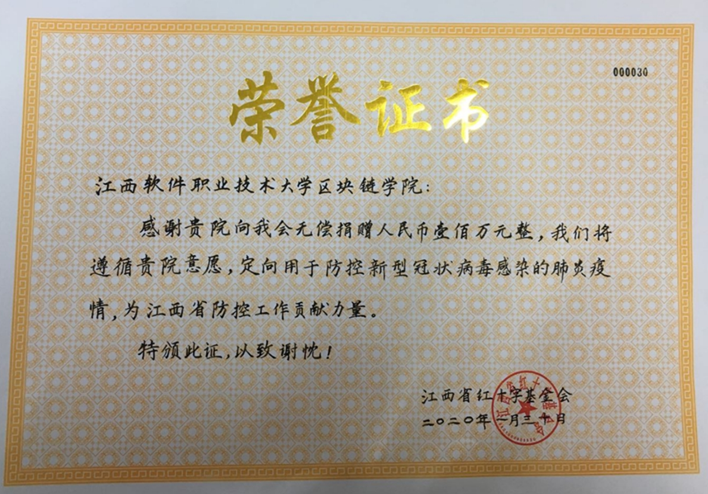 000030
荣誉证书
江西软件职业技术大学区块链学院：
感谢贵院向我会无偿捐赠人民币壹佰万元整，我们将
遵循贵院意愿，定向用于防控新型冠状病毒感染的肺炎疫
情，为江西省防控工作贡献力量。
特颁此证，以致谢忱！
江西省红十字基金会
二〇二〇年一月三十日